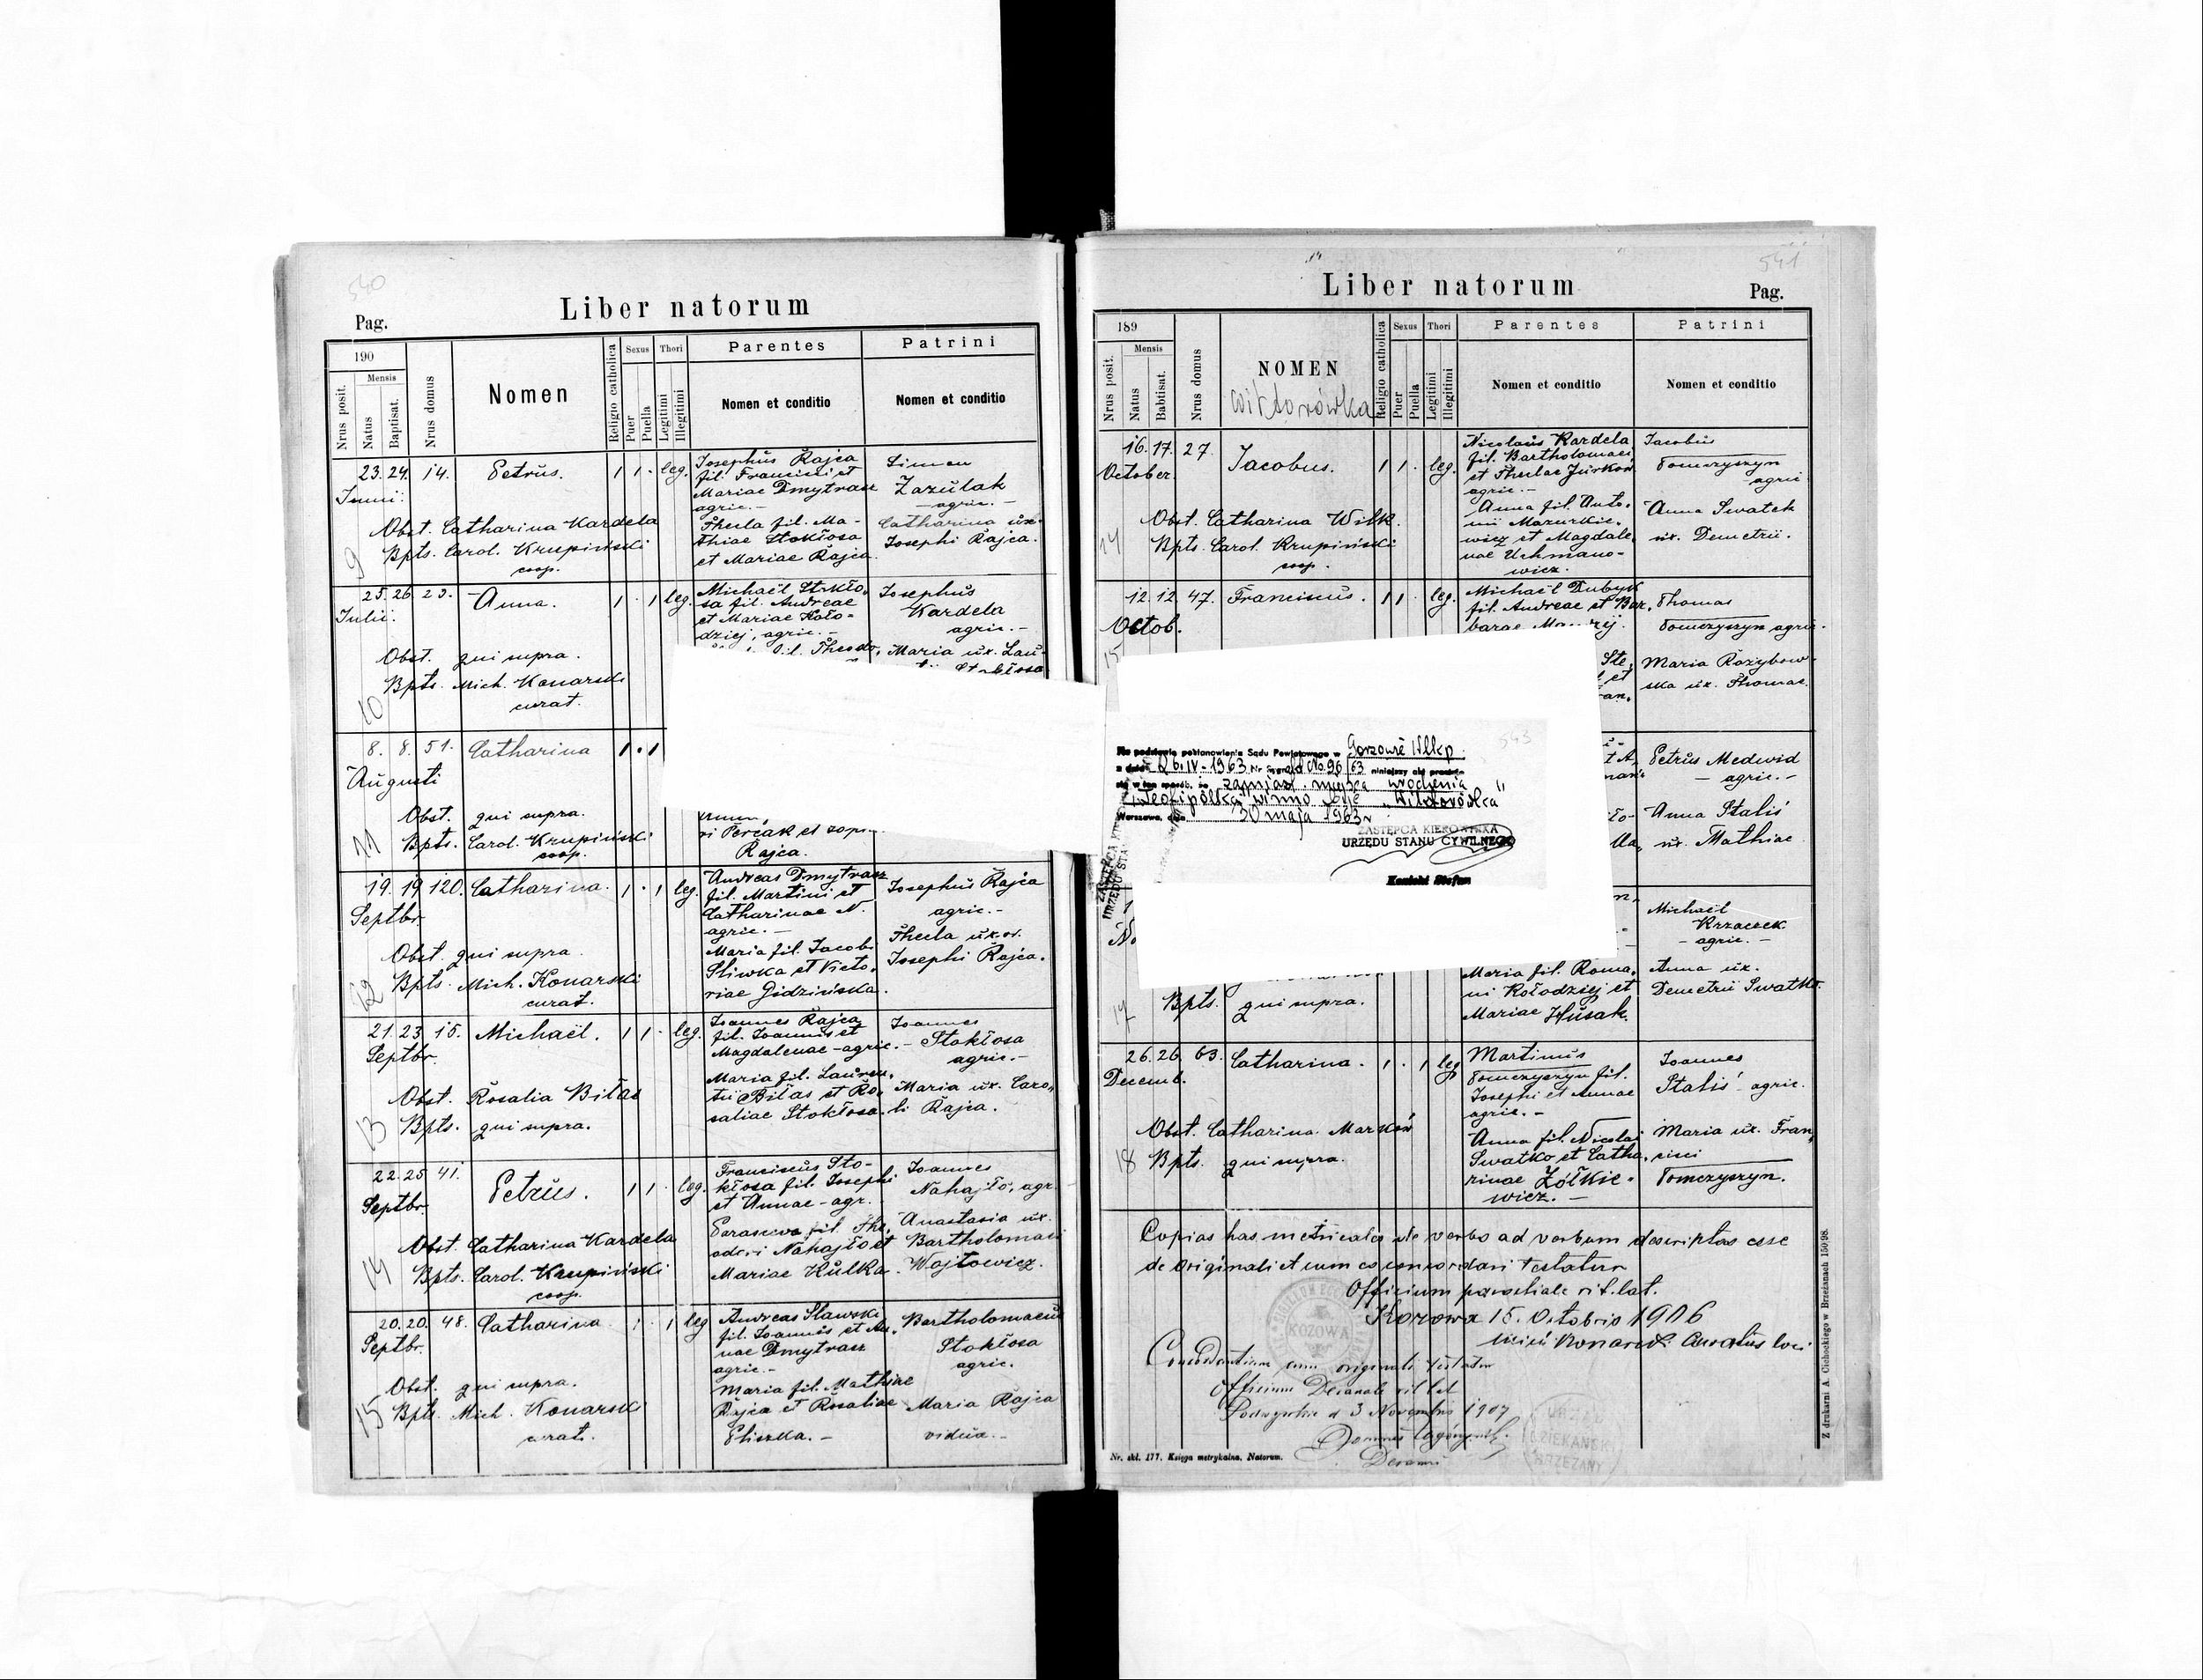 540
Liber natorum
Pag.
190
Nrus posit.
Mensis
Natus
Baptisat.
Nrus domus
Nomen
Religio catholica
Sexus
Puer
Puella
Thori
Legitimi
Illegitimi
Parentes
Nomen et conditio
Patrini
Nomen et conditio
23. 24. 14. Petrus. 1 1 . leg.
Junii.
Josephus Rajca
fil. Francisci et
Mariae Dmytrasz
agric. -
Thecla fil. Ma-
thiae Stokłosa
et Mariae Rajca
Simon
Zazulak
- agric. -
Catharina ux.
Josephi Rajca.
Obst. Catharina Kardela
9 Bpts. Carol. Krupiński
coop.
25. 26. 23. Anna. 1 . 1 leg.
Julii.
Michaël Stokło-
sa fil. Andreae
et Mariae Koło-
dziej, agric. -
fil. Theodo-
Josephus
Kardela
agric. -
Maria ux. Lau-
Stokłosa
Obst. qui supra.
10 Bpts. Mich. Konarski
curat.
8. 8. 51. Catharina 1 . 1
Augusti
Obst. qui supra.
11 Bpts. Carol. Krupiński
coop.
ri Perčak et Soph
Rajca.
19. 19. 120. Catharina. 1 . 1 leg.
Septbr.
Andreas Dmytrasz
fil. Martini et
Catharinae N.
agric. -
Maria fil. Jacobi
Sliwka et Victo-
riae Gidzińska.
Josephus Rajca
agric. -
Thecla uxor.
Josephi Rajca.
Obst. qui supra
12 Bpts. Mich. Konarski
curat.
21. 23. 15. Michaël. 1 1 . leg.
Septbr.
Joannes Rajca
fil. Joannis et
Magdalenae - agric. -
Maria fil. Lauren-
tii Biłas et Ro-
saliae Stokłosa.
Joannes
Stokłosa
agric. -
Maria ux. Caro-
li Rajca.
Obst. Rosalia Biłas
13 Bpts. qui supra.
22. 25. 41. Petrus. 1 1 . leg.
Septbr.
Franciscus Sto-
kłosa fil. Josephi
et Annae - agr.
Parascewa fil. The-
odori Nahajło et
Mariae Kulka.
Joannes
Nahajło, agr.
Anastasia ux.
Bartholomaei
Wojtowicz.
Obst. Catharina Kardela
14 Bpts. Carol. Krupiński
coop.
20. 20. 48. Catharina . 1 leg
Septbr.
Andreas Sławski
fil. Joannis et An-
nae Dmytrasz
agric. -
Maria fil. Mathiae
Rajca et Rosaliae
Pliszka. -
Bartholomaeus
Stokłosa
agric.
Maria Rajca
vidua. -
Obst. qui supra.
15 Bpts. Mich. Konarski
curat.
541
Liber natorum
Pag.
189
Nrus posit.
Mensis
Natus
Babtisat.
Nrus domus
NOMEN
Wiktorówka
Religio catholica
Sexus
Puer
Puella
Thori
Legitimi
Illegitimi
Parentes
Nomen et conditio
Patrini
Nomen et conditio
16. 17. 27. Jacobus. 1 1 . leg.
October.
Nicolaus Kardela
fil. Bartholomaei
et Theclae Jurkow
agric. -
Anna fil. Anto-
nii Mazurkie-
wicz et Magdale-
nae Uchmano-
wicz.
Jacobus
Tomczyszyn
agric.
Anna Swatek
ux. Demetrii.
Obst. Catharina Wilk.
14 Bpts. Carol. Krupiński
coop.
12. 12. 47. Franciscus. 1 1 leg.
Octob.
15
Michaël Dubyk
fil. Andreae et Bar-
barae
Thomas
Tomczyszyn agric.
Maria Rozybow-
ska ux. Thomae.
Petrus Medwid
- agric. -
Anna Staliś
ux. Mathiae
Michaël
Krzaczek
- agric. -
Anna ux.
Demetrii Swatko.
Maria fil. Roma-
ni Kołodziej et
Mariae Husak.
17 Bpts. qui supra.
26. 26. 63. Catharina. 1 . 1 leg
Decemb.
Martinus
Tomczyszyn fil.
Josephi et Annae
agric. -
Anna fil. Nicolai
Swatko et Catha-
rinae Żółkie-
wicz. -
Joannes
Staliś - agric.
Maria ux. Fran-
cisci
Tomczyszyn.
Obst. Catharina Marków
18 Bpts. qui supra.
Copias has metricales de verbo ad verbum descriptas esse
de originali et cum eo concordari testatur
Officium parochiale rit. lat.
Kozowa 15. Octobris 1906
Konarski Curatus loci
KOZOWA
Concordantiam cum originali testatur
Officium Decanale rit lat
3 Novembris 1907
URZĄD
DZIEKAŃSKI
BRZEŻANY
Nr. skł. 177. Księga metrykalna. Natorum.
Z drukarni A. Cichockiego w Brzeżanach 150 98
543
Na podstawie postanowienia Sądu Powiatowego w Gorzowie Wlkp.
z dnia 26.IV-1963 Nr 96/63 niniejszy akt
się w ten sposób, że zamiast miejsca urodzenia
"Teofipólka" winno być "Wiktorówka"
Warszawa, dnia 30 maja 1963 r
ZASTĘPCA KIEROWNIKA
URZĘDU STANU CYWILNEGO
Konicki Stefan